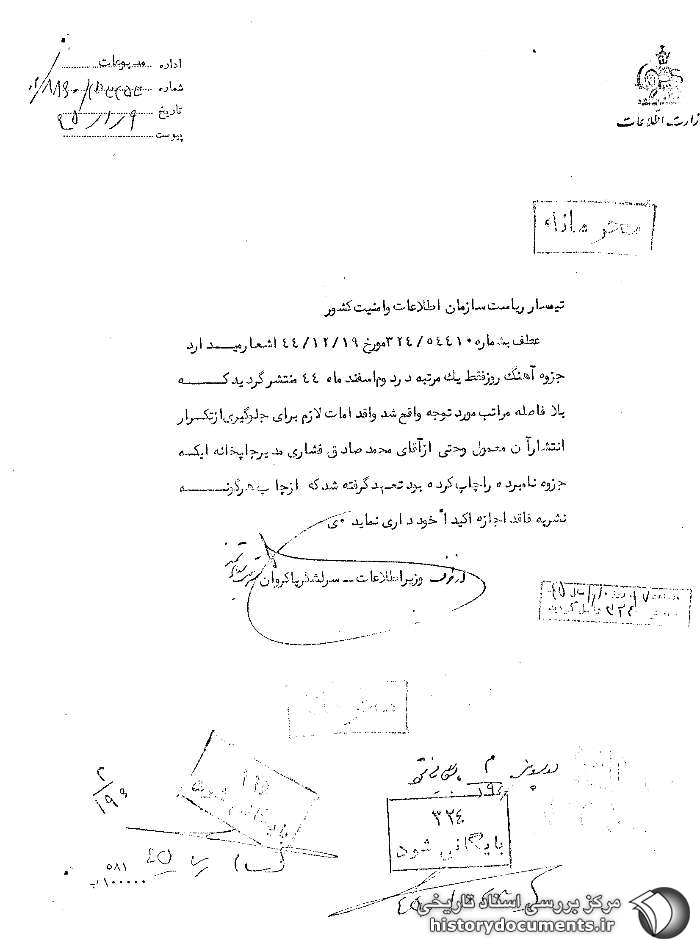 وزارت اطلاعات
اداره مطبوعات
شماره
تاریخ ۴۵/۱/۹
پیوست
محرمانه
تیمسار ریاست سازمان اطلاعات وامنیت کشور
عطف بشماره ۳۲٤/٥٤٤۱۰ مورخ ٤٤/۱۲/۱۹ اشعار میدارد
جزوه آهنگ روز فقط یك مرتبه در دوم اسفند ماه ٤٤ منتشر گردید که
بلا فاصله مراتب مورد توجه واقع شد واقدامات لازم برای جلوگیری از تکرار
انتشار آن معمول وحتی از آقای محمد صادق فشاری مدیر چاپخانه ایکه
جزوه نامبرده را چاپ کرده بود تعهد گرفته شد که از چاپ هر گونه
نشریه فاقد اجازه اکیداً خود داری نماید ۰ی
از طرف وزیر اطلاعات ــ سرلشگر پاکروان
محرمانه
بایگانی شود
۳۲٤
بایگانی شود
٥۸۱
۱۰۰۰۰۰
مرکز بررسی اسناد تاریخی
historydocuments.ir